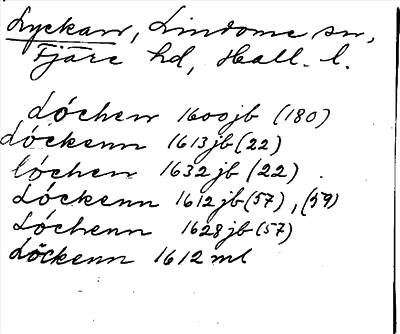 Lyckan, Lindome sn,
Fjäre hd, Hall. l.
Lóchen 1600jb (180)
Lóckenn 1613jb (22)
lóchen 1632jb (22)
Lóckenn 1612jb (57), (59)
Lóchenn 1628jb (57)
Löckenn 1612 ml